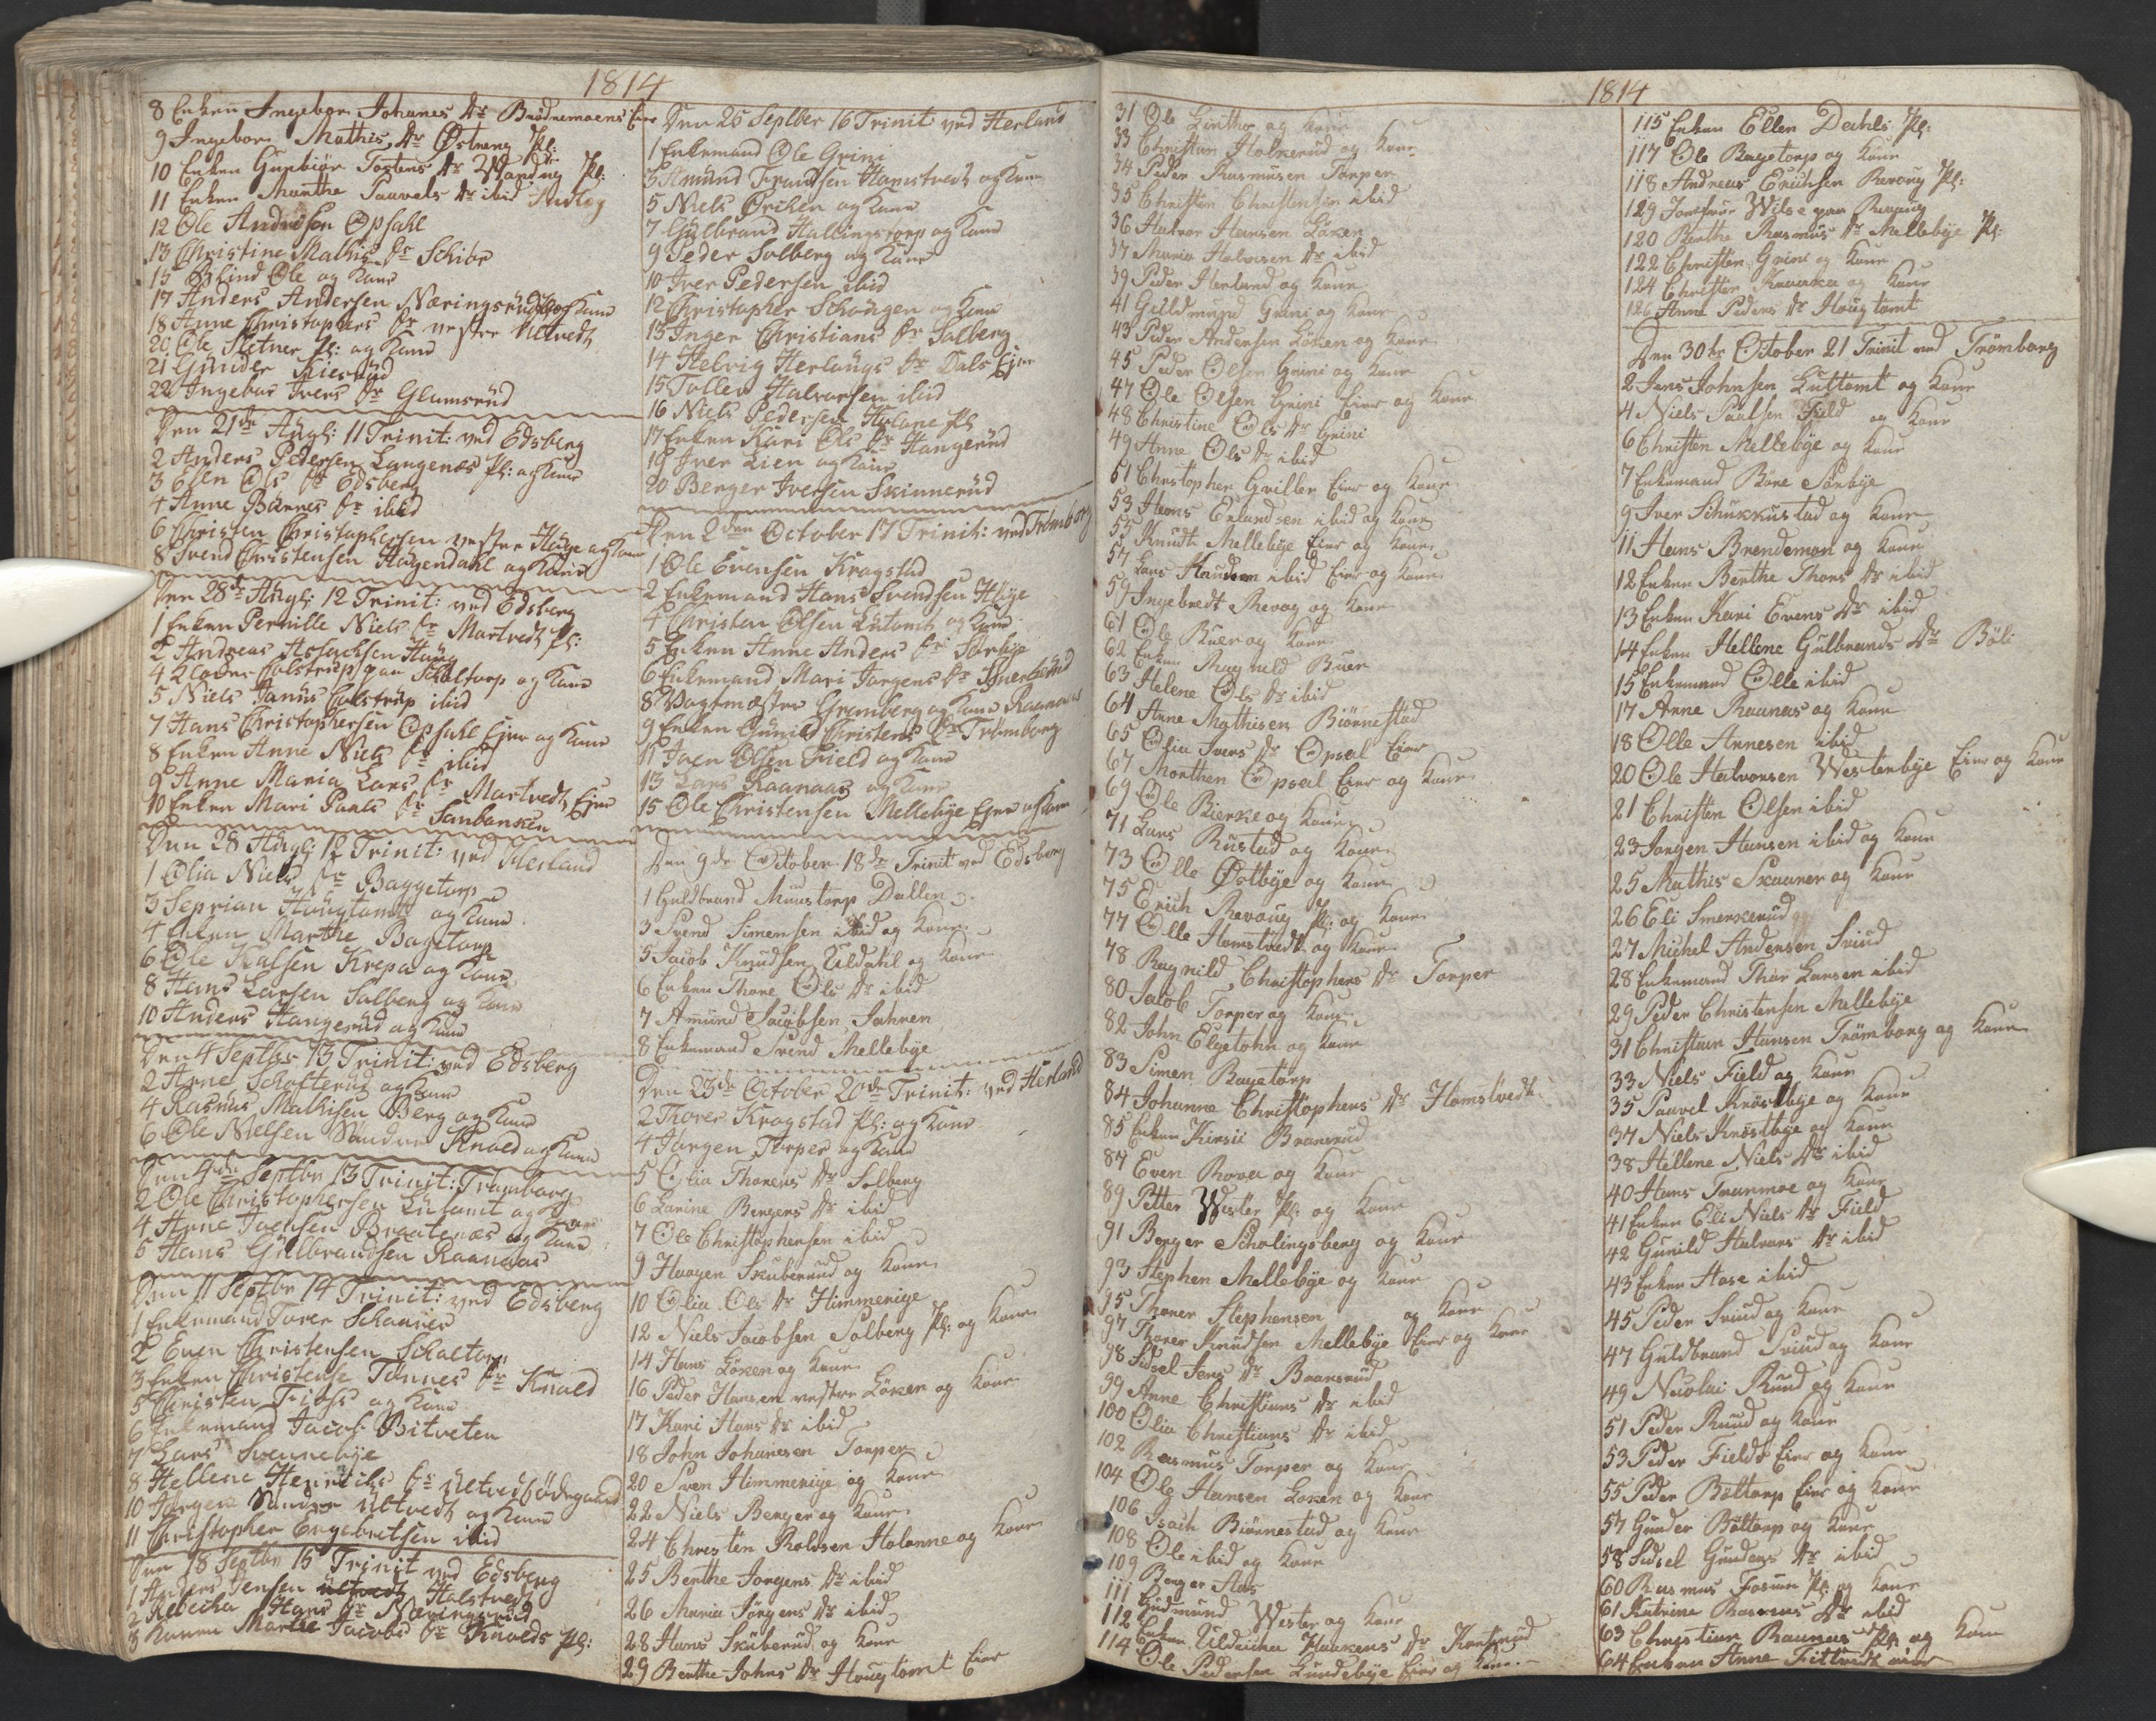 1814
8 Enken Ingebor Johanes Dr Brødremoens Eier
9 Ingebor Mathis Dr Østreng Pl:
10 Enken Gunbiør Tostens Dr Warding Pl:
11 Enken Marthe Paavels Dr ibid
12 Ole Andersen Opsahl
13 Christine Mathis Dr Schibr
15 Blind Ole og Kone
17 Anders Andersen Næringsrud og Kone
18 Anne Christophers Dr vestre Ultvedt
20 Ole Sletner Pl: og Kone
21 Gunder Kiesrud
22 Ingebor Ivers Dr Glamsrud
Den 21de Augst: 11 Trinit: ved Edsberg
2 Anders Pedersen Langenæs Pl: og Kone
3 Elen Ols Dr Edsberg
4 Anne Bannes Dr ibid
6 Christen Christophersen vestre Huge og Kone
8 Svend Christensen Haugendahl og Kone
Den 28de Augst: 12 Trinit: ved Edsberg
1 Enken Pernille Niels Dr Martvedt Pl:
2 Andreas Haug
4 Colstrup paa Schaltorp og Kone
5 Niels Janus Colstrup ibid
7 Hans Christophersen Opsahl Ejer og Kone
8 Enken Anne Niels Dr ibid
9 Anne Maria Lars Dr Martvedt Ejer
10 Enken Mari Paals Dr Sanbanken
Den 28 Augst: 12 Trinit: ved Herland
1 Olia Niels Dr Baggetorp
3 Seprian Haugtomt og Kone
4 Enken Marthe Bagetorp
6 Ole Kalsen Krepa og Kone
8 Hans Larsen Salberg og Kone
10 Anders Hangerud og Kone
Den 4 Septbr 13 Trinit: ved Edsberg
2 Arne Schofterud og Kone
4 Rasmus Mathisen Berg og Kone
6 Ole Nielsen Søndre Knold og Kone
Den 4de Septbr 13 Trinit: Trømborg
2 Ole Christophersen Lutomt og Kone
4 Arne Joensen Braatenæs og Kone
5 Hans Gulbrandsen Raanaas
Den 11 Septbr 14 Trinit: ved Edsberg
1 Enkemand Torer Schaarer
2 Even Christensen Schaltorp
3 Enken Christense Tønnes Dr Knold
5 Christen og Kone
6 Enkemand Jacob Bitveten
7 Lars Svennebye
8 Hellene Henrichs Dr Ultvedødegaard
10 Jørgen Søndre Ultvedt og Kone
11 Christopher Engebretsen ibid
Den 18 Septbr 15 Trinit ved Edsberg
1 Anders Jensen Holstvedt
2 Rebecka Hans Dr Næringsrud
3 Karen Marthe Jacobs Dr Knolds Pl:
Den 25 Septber 16 Trinit: ved Herland
1 Enkemand Ole Grini
3 Amund Frandsen Hamstvedt og Kone
5 Niels Ørichen og Kone
7 Gulbrand Hallingstorp og Kone
9 Peder Solberg og Kone
10 Iver Pedersen ibid
12 Christopher Schougen og Kone
13 Inger Christians Dr Salberg
14 Helvig Herlaugs Dr Dals Ejer
15 Tollev Halvorsen ibid
16 Niels Pedersen Holane Pl
17 Enken Kari Ols Dr Hangerud
19 Iver Lien og Kone
20 Berger Iversen Skinnerud
Den 2den October 17 Trinit: ved Trømborg
1 Ole Evensen Kragstad
2 Enkemand Hans Svendsen Høije
4 Christen Olsen Lutomt og Kone
5 Enken Anne Anders Dr Sørbye
6 Enkemand Mari Jørgens Dr
8 Vagtmæster Gramberg og Kone Raanaas
9 Enken Gunild Christens Dr Trømborg
11 Joen Olsen Field og Kone
13 Lars Raanaas og Kone
15 Ole Christensen Mellebye Ejer og Kone
Den 9de October 18de Trinit ved Edsberg
1 Guldbrand Muustorp Dallen
3 Svend Simensen ibid og Kone
5 Jacob Knudsen Uldahl og Kone
6 Enken Thore Ols Dr ibid
7 Amund Jacobsen Jahren
8 Enkemand Svend Mellebye
Den 23de October 20de Trinit: ved Herland
2 Thorer Kragstad Pl: og Kone
4 Jørgen Torper og Kone
5 Olia Thorers Dr Solberg
6 Karine Bergers Dr ibid
7 Ole Christophersen ibid
9 Haagen Skuberud og Kone
10 Olia Ols Dr Himmerige
12 Niels Jacobsen Solberg Pl: og Kone
14 Hans Løken og Kone
16 Peder Hansen vestre Løken og Kone
17 Kari Hans Dr ibid
18 John Johanesen Torper
20 Sven Himmerige og Kone
22 Niels Berger og Kone
24 Christen Roldsen Holanne og Kone
25 Berthe Jørgens Dr ibid
26 Maria Jørgens Dr ibid
28 Hans Skuberud og Kone
29 Berthe Johns Dr Hougtomt Eier
1814
31 Ole Linthe og Kone
33 Christian Holkerud og Kone
34 Peder Rasmusen Torper
35 Christen Christensen ibid
36 Halvor Hansen Løken
37 Maria Halvorsen Dr ibid
39 Peder Herland og Kone
41 Guldmund Grini og Kone
43 Peder Andersen Løken og Kone
45 Peder Olsen Grini og Kone
47 Ole Olsen Grini Eier og Kone
48 Christine Ols Dr Grini
49 Anne Ols Dr ibid
51 Christopher Gviller Eier og Kone
53 Hans Erlandsen ibid og Kone
55 Knudt Mellebye Eier og Kone
57 Lars Knudsen ibid Eier og Kone
59 Ingebredt Revog og Kone
61 Ole Buer og Kone
62 Enken Magnild Buer
63 Helene Ols Dr ibid
64 Anne Mathisen Biørnestad
65 Olia Ivers Dr Opsal Eier
67 Morthen Opsal Eier og Kone
69 Ole Bierke og Kone
71 Lars Rustad og Kone
73 Olle Østbye og Kone
75 Erich Revoug Pl: og Kone
77 Olle Homstvedt og Kone
78 Ragnild Christophers Dr Torper
80 Jacob Torper og Kone
82 John Elgetohn og Kone
83 Simen Bagetorp
84 Johanne Christophers Dr Homstvedt
85 Enken Kirsti Branerud
87 Even Rova og Kone
89 Petter Wister Pl: og Kone
91 Berger Scholingsberg og Kone
93 Stephen Mellebye og Kone
95 Thorer Stephensen og Kone
97 Thorer Knudsen Mellebye Eier og Kone
98 Sidsel Jens Dr Baansrud
99 Anne Christians Dr ibid
100 Olia Christians Dr ibid
102 Rasmus Torper og Kone
104 Ole Hansen Løken og Kone
106 Isach Biørnestad og Kone
108 Ole ibid og Kone
109 Berger Aas
111 Gudmund Wester og Kone
112 Enken Haakens Dr
114 Ole Pedersen Lundebye Eier og Kone
115 Enken Ellen Dahls Pl:
117 Ole Bagetorp og Kone
118 Andreas Erichsen Revoug Pl:
119 Jomfrue Wilse paa Revoug
120 Berthe Rasmus Dr Mellebye Pl:
122 Christen Grini og Kone
124 Christen Kraaka og Kone
126 Anne Peders Dr Hougtomt
Den 30te October 21 Trinit ved Trømborg
2 Jens Johnsen Luttomt og Kone
4 Niels Paalsen Field og Kone
6 Christen Mellebye og Kone
7 Enkemand Børe Sørbye
9 Iver Schukkustad og Kone
11 Hans Brendemoen og Kone
12 Enken Berthe Thors Dr ibid
13 Enken Kari Evens Dr ibid
14 Enken Hellene Gulbrands Dr Bøli
15 Enkemand Olle ibid
17 Arne Raanaas og Kone
18 Olle Arnesen ibid
20 Ole Halvorsen Westenbye Eier og Kone
21 Christen Olsen ibid
23 Jørgen Hansen ibid og Kone
25 Mathis Skaarer og Kone
26 Eli Smerkerud
27 Michel Andersen Sviud
28 Enkemand Thor Larsen ibid
29 Peder Christensen Mellebye
31 Christian Hansen Trømborg og Kone
33 Niels Field og Kone
35 Paavel Knøstbye og Kone
37 Niels Knøstbye og Kone
38 Hellene Niels Dr ibid
40 Hans Tranmoe og Kone
41 Enken Eli Niels Dr Field
42 Gunild Halvors Dr ibid
43 Enken Aase ibid
45 Peder Sviud og Kone
47 Guldbrand Sviud og Kone
49 Nicolai Ruud og Kone
51 Peder Ruud og Kone
53 Peder Fields Eier og Kone
55 Peder Bøltorp Eier og Kone
57 Gunder Bøltorp og Kone
58 Sidsel Gunders Dr ibid
60 Rasmus Fosum Pl: og Kone
61 Katrine Rasmus Dr ibid
63 Christian Raanaas Pl: og Kone
64 Enken Anne